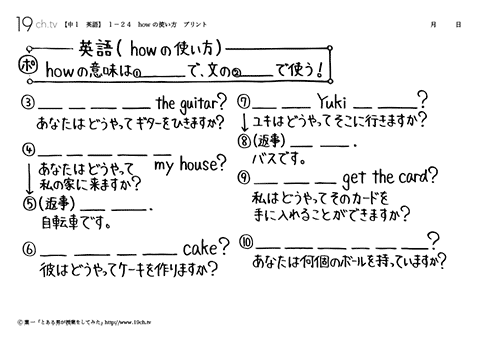 19ch.tv 【中1 英語】 1-24 how の使い方 プリント 月 日
英語(howの使い方)
ポ howの意味は①______で、文の②______で使う!
③ __ __ __ __ the guitar?
あなたはどうやってギターをひきますか?
④ __ __ __ __ __ my house?
あなたはどうやって
私の家に来ますか?
⑤(返事) __ __.
自転車です。
⑥ __ __ __ __ __ cake?
彼はどうやってケーキを作りますか?
⑦ __ __ Yuki __ __?
ユキはどうやってそこに行きますか?
⑧(返事) __ __.
バスです。
⑨ __ __ __ get the card?
私はどうやってそのカードを
手に入れることができますか?
⑩ __ __ __ __ __ __?
あなたは何個のボールを持っていますか?
©葉一「とある男が授業をしてみた」http://www.19ch.tv